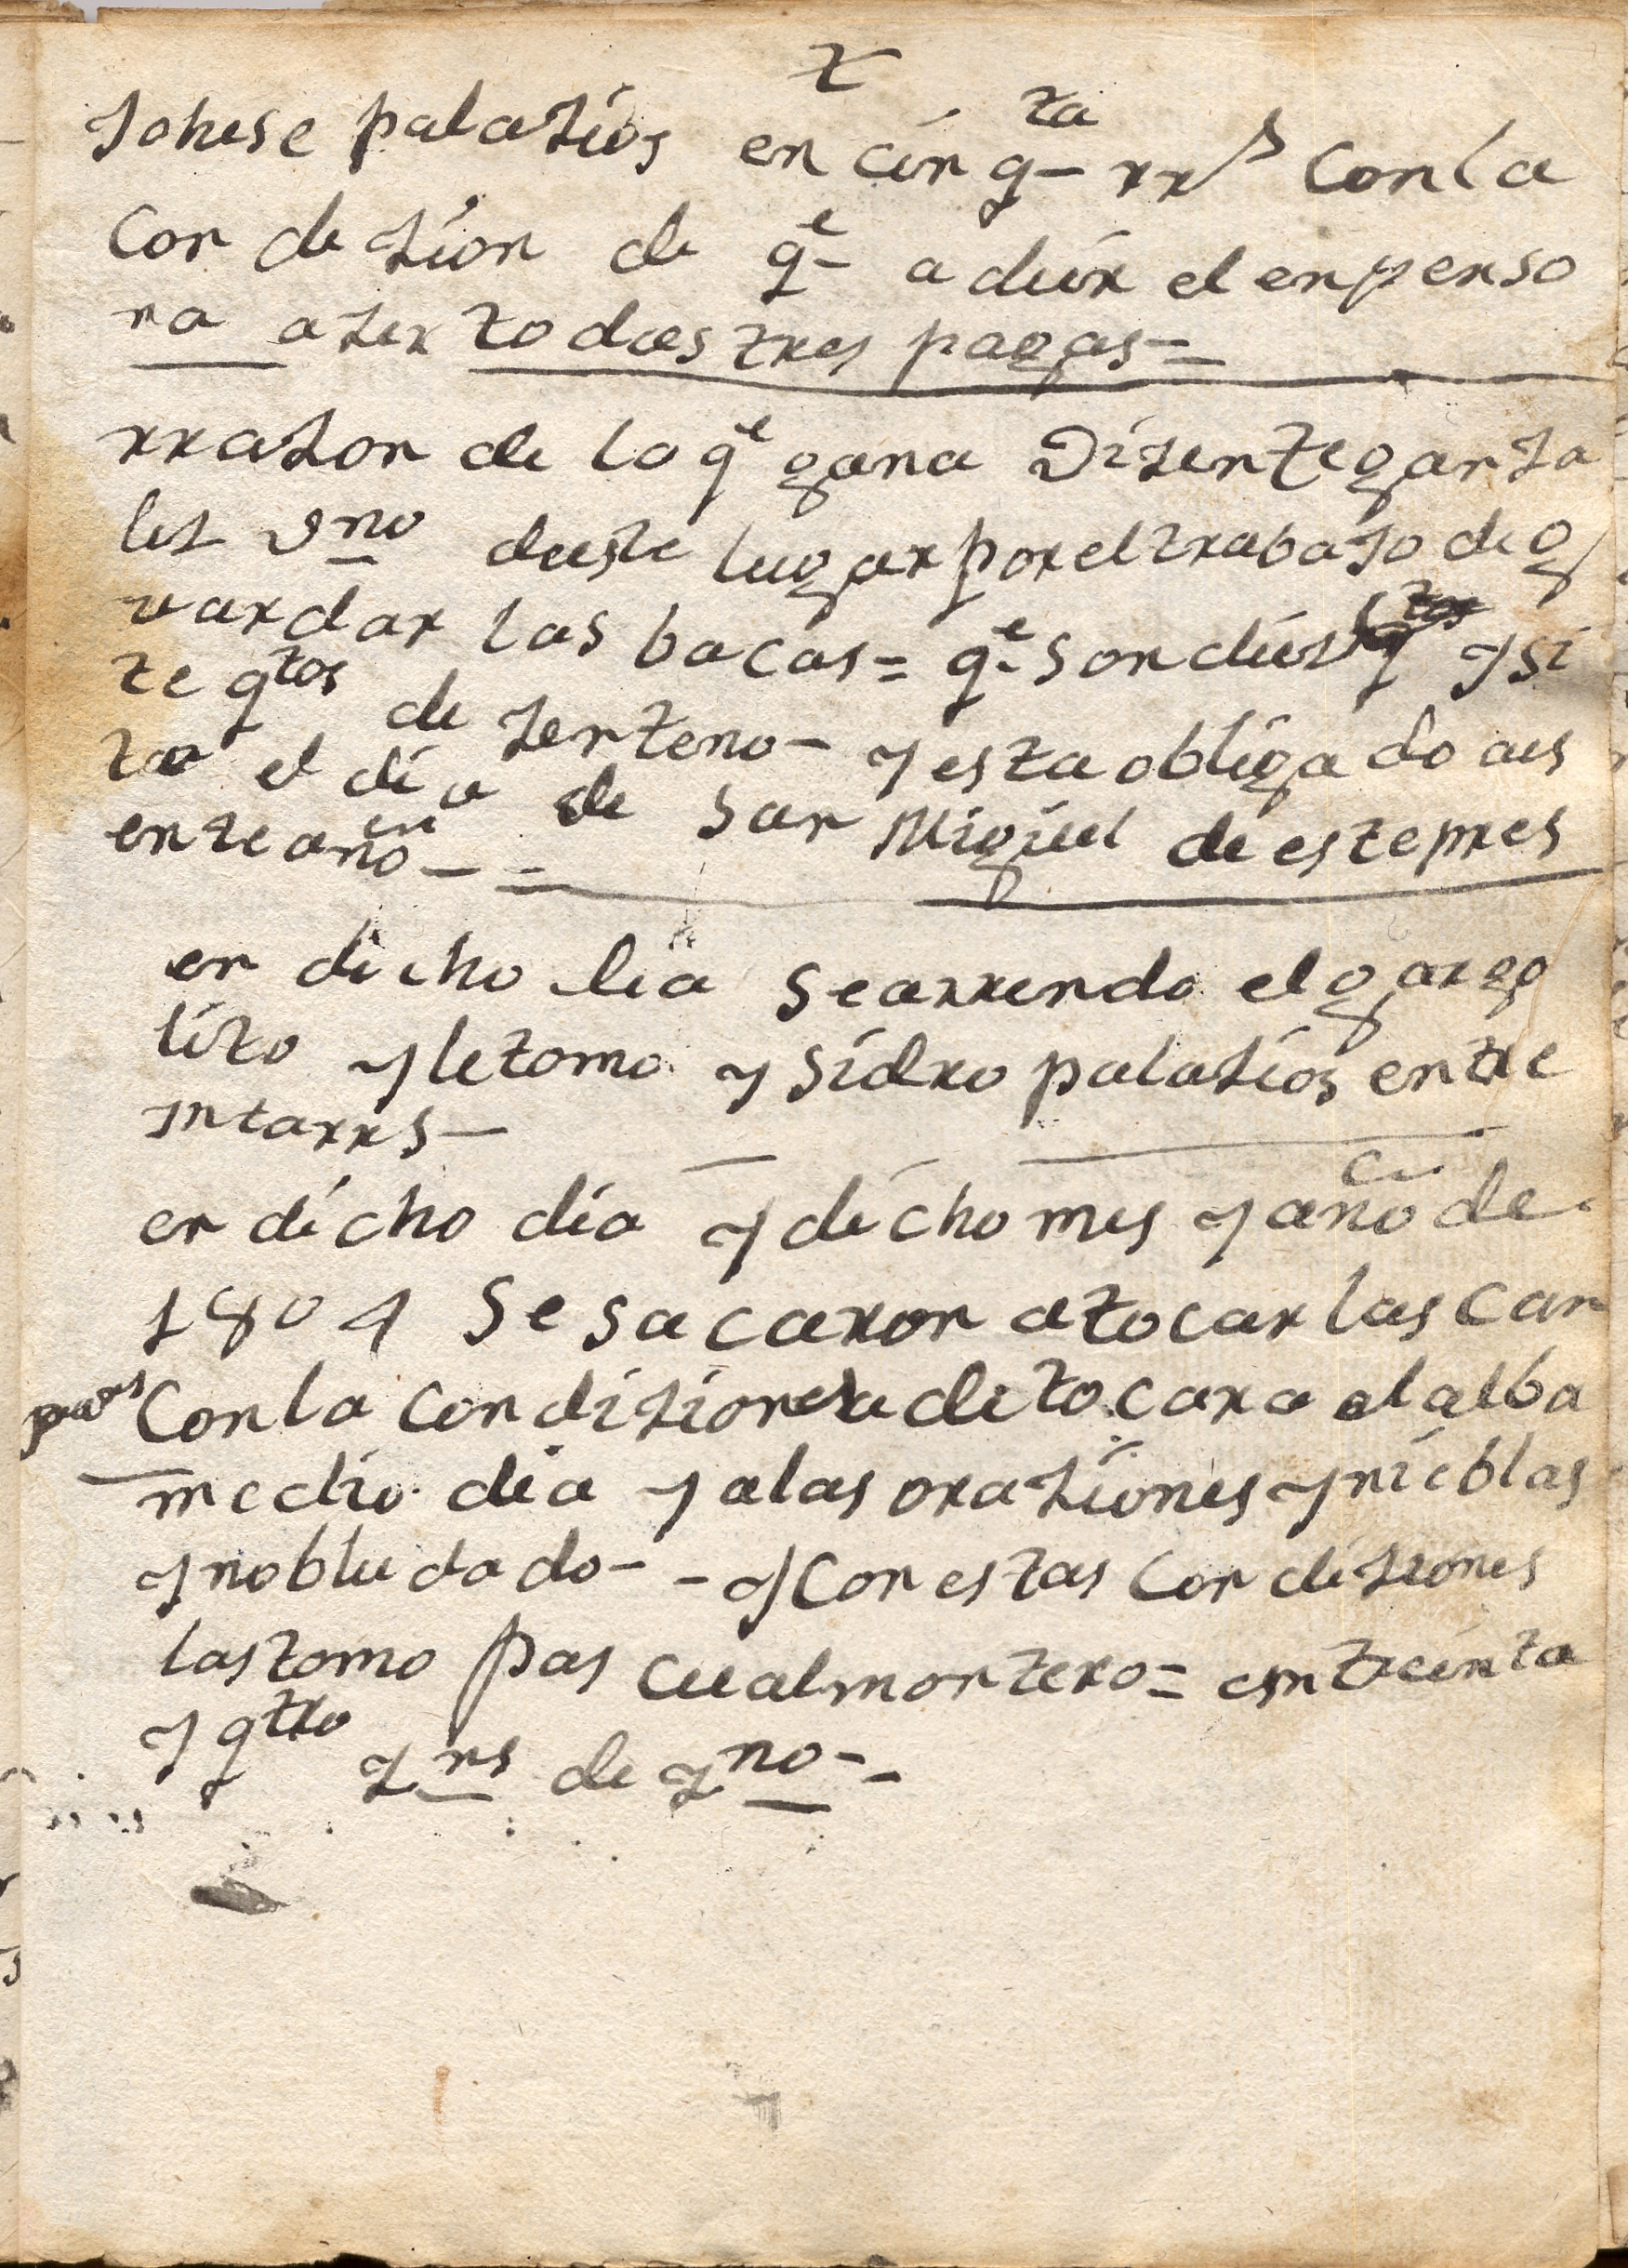 Johese palazios en cinq^ta rr^s Conla
Con dezion de q^e a deir el enperso
na azer todas tres pagas =
rrazon de lo q^e gana Dizente garza
lez v^no deeste lugar por el trabajo de g
uardar las bacas = q^e son diez y si
te q^tos de zenteno - y esta obligado aes
ta el dia de San Miguel de este pres
ente año - =
en dicho dia searrendo el gargo
lito y le tomo ysidro palazios entre
intarrs -
en dicho dia y dicho mes y año de
1804 Se sacaron atocar las can
panas Conla condizion de tocar a el alba
medio dia y alas oraziones y nieblas
y nobludado - - y Con estas Condiziones
las tomo pascual montero = en treinta
y q^tro y^ns de y^no - -